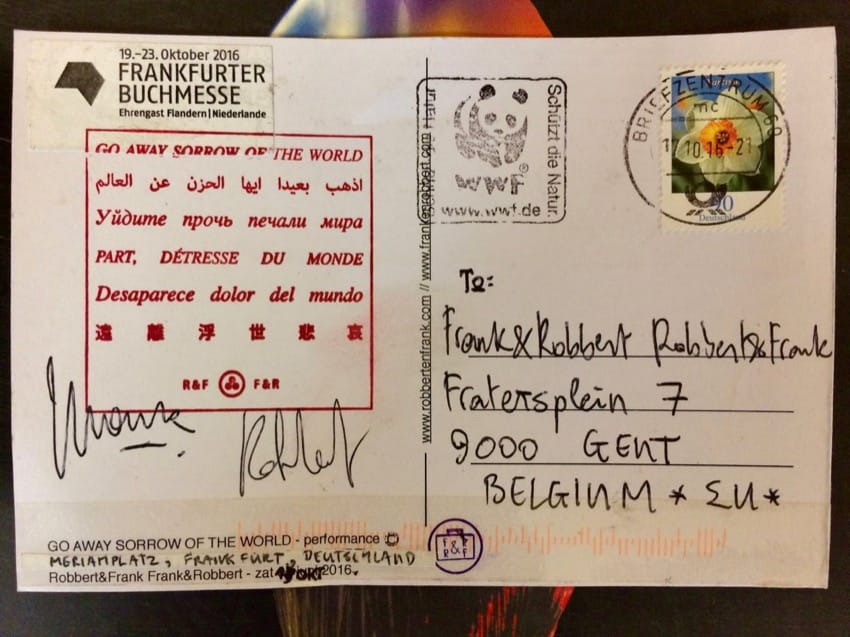 19.–23. Oktober 2016
FRANKFURTER
BUCHMESSE
Ehrengast Flandern | Niederlande
GO AWAY SORROW OF THE WORLD
اذهب بعيدا ايها الحزن عن العالم
Уйдите прочь печали мира
PART, DÉTRESSE DU MONDE
Desaparece dolor del mundo
遠離浮世悲哀
R&F F&R
Robbert
GO AWAY SORROW OF THE WORLD - performance
MERIANPLATZ, FRANKFURT, DEUTSCHLAND
Robbert&Frank Frank&Robbert - zat OKT 2016.
www.robbertenfrank.com // www.frankenrobbert.com
F&R
R&F
Schützt die Natur.
WWF®
www.wwf.de
BRIEFZENTRUM 60
mc
17.10.16-21
Deutschland
To:
Frank&Robbert Robbert&Frank
Fratersplein 7
9000 GENT
BELGIUM * EU *